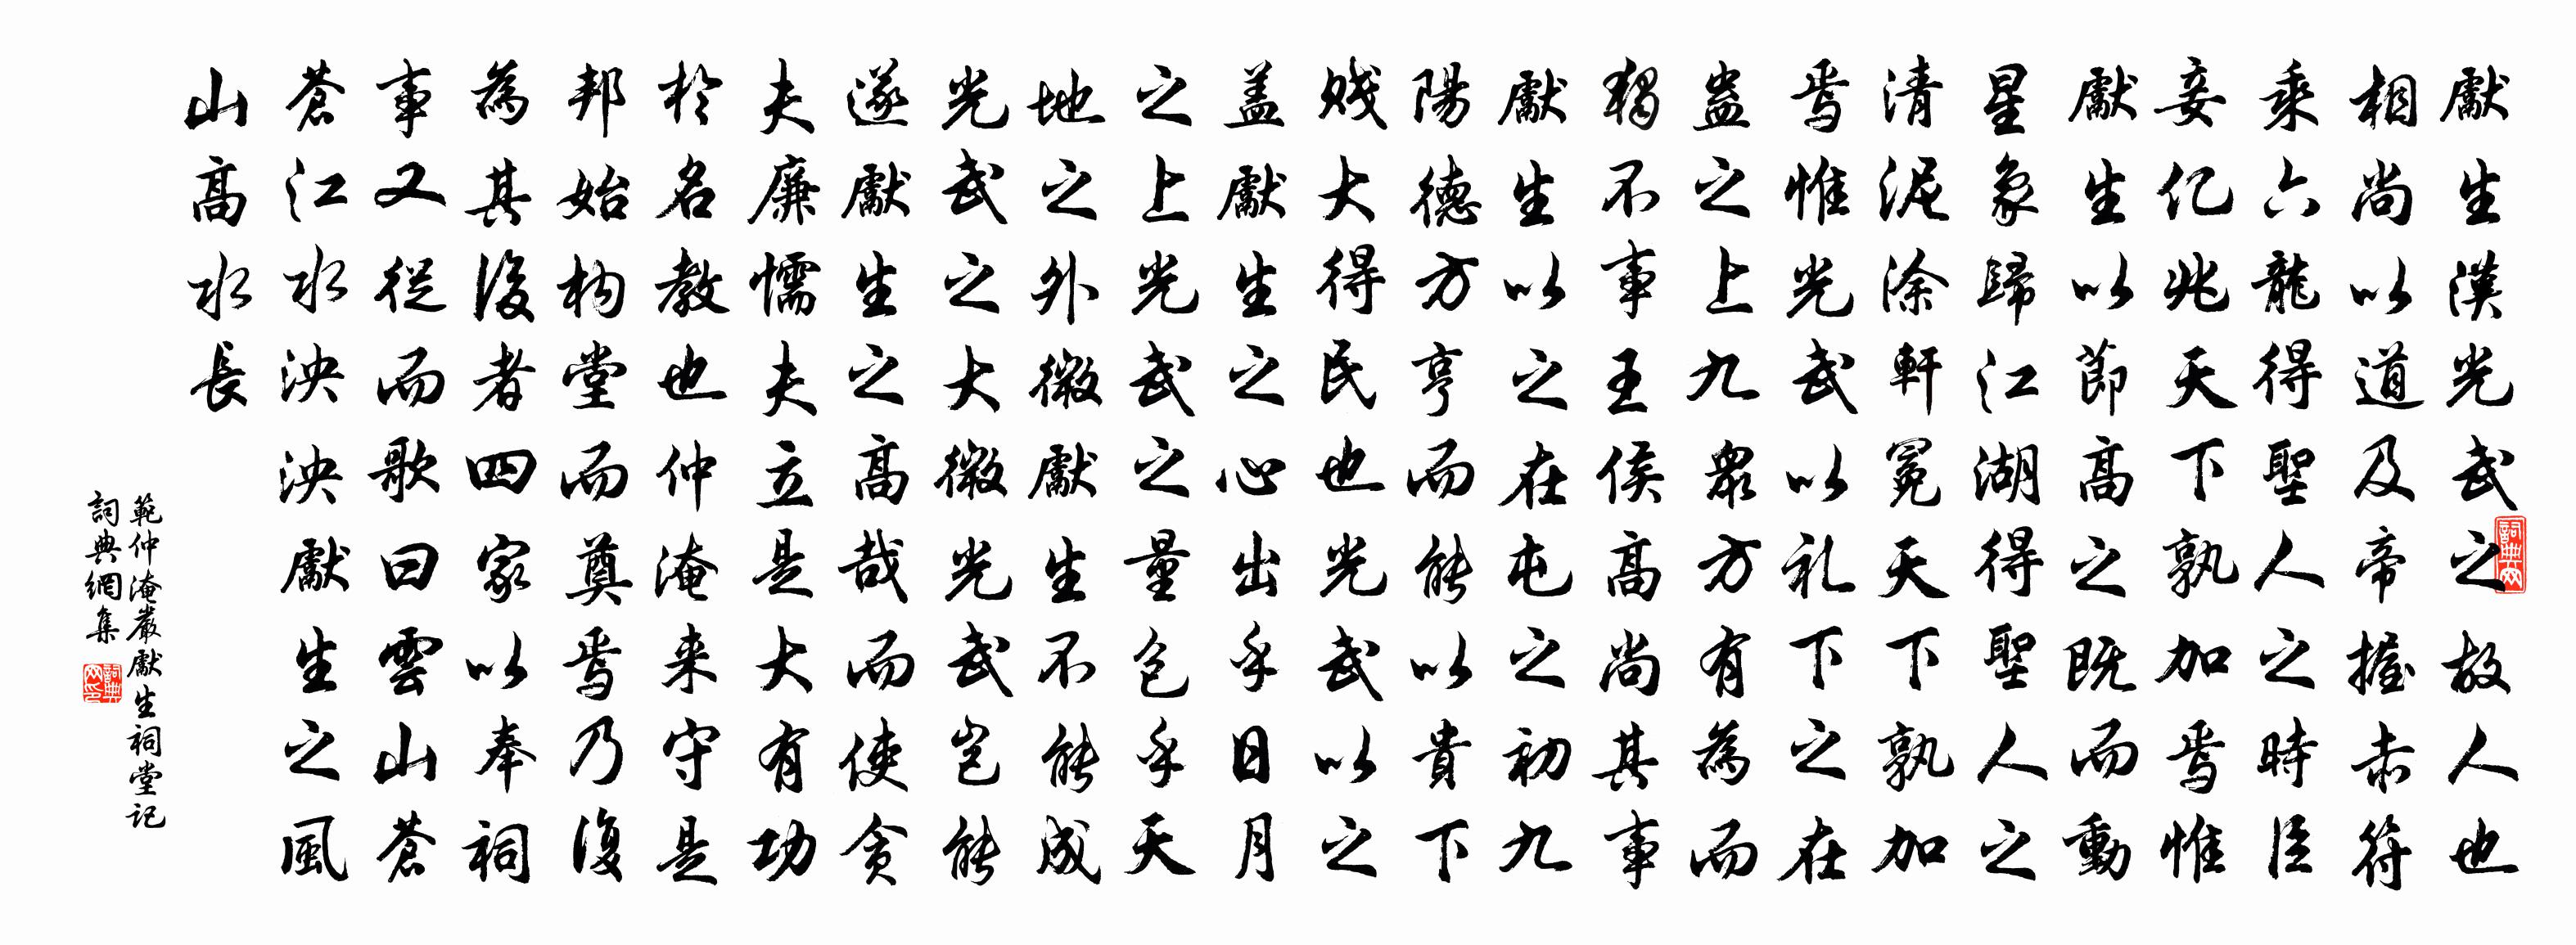 獻生漢光武之故人也
相尚以道及帝握赤符
乘六龍得聖人之時臣
妾亿兆天下孰加焉惟
獻生以節高之既而動
星象歸江湖得聖人之
清泥涂軒冕天下孰加
焉惟光武以礼下之在
蛊之上九眾方有為而
獨不事王侯高尚其事
獻生以之在屯之初九
陽德方亨而能以貴下
賤大得民也光武以之
盖獻生之心出乎日月
之上光武之量包乎天
地之外微獻生不能成
光武之大微光武豈能
遂獻生之高哉而使貪
夫廉懦夫立是大有功
於名教也仲淹来守是
邦始构堂而奠焉乃復
為其後者四家以奉祠
事又從而歌曰雲山蒼
蒼江水泱泱獻生之風
山高水長
範仲淹嚴獻生祠堂記
詞典網集
詞典网
詞典网印